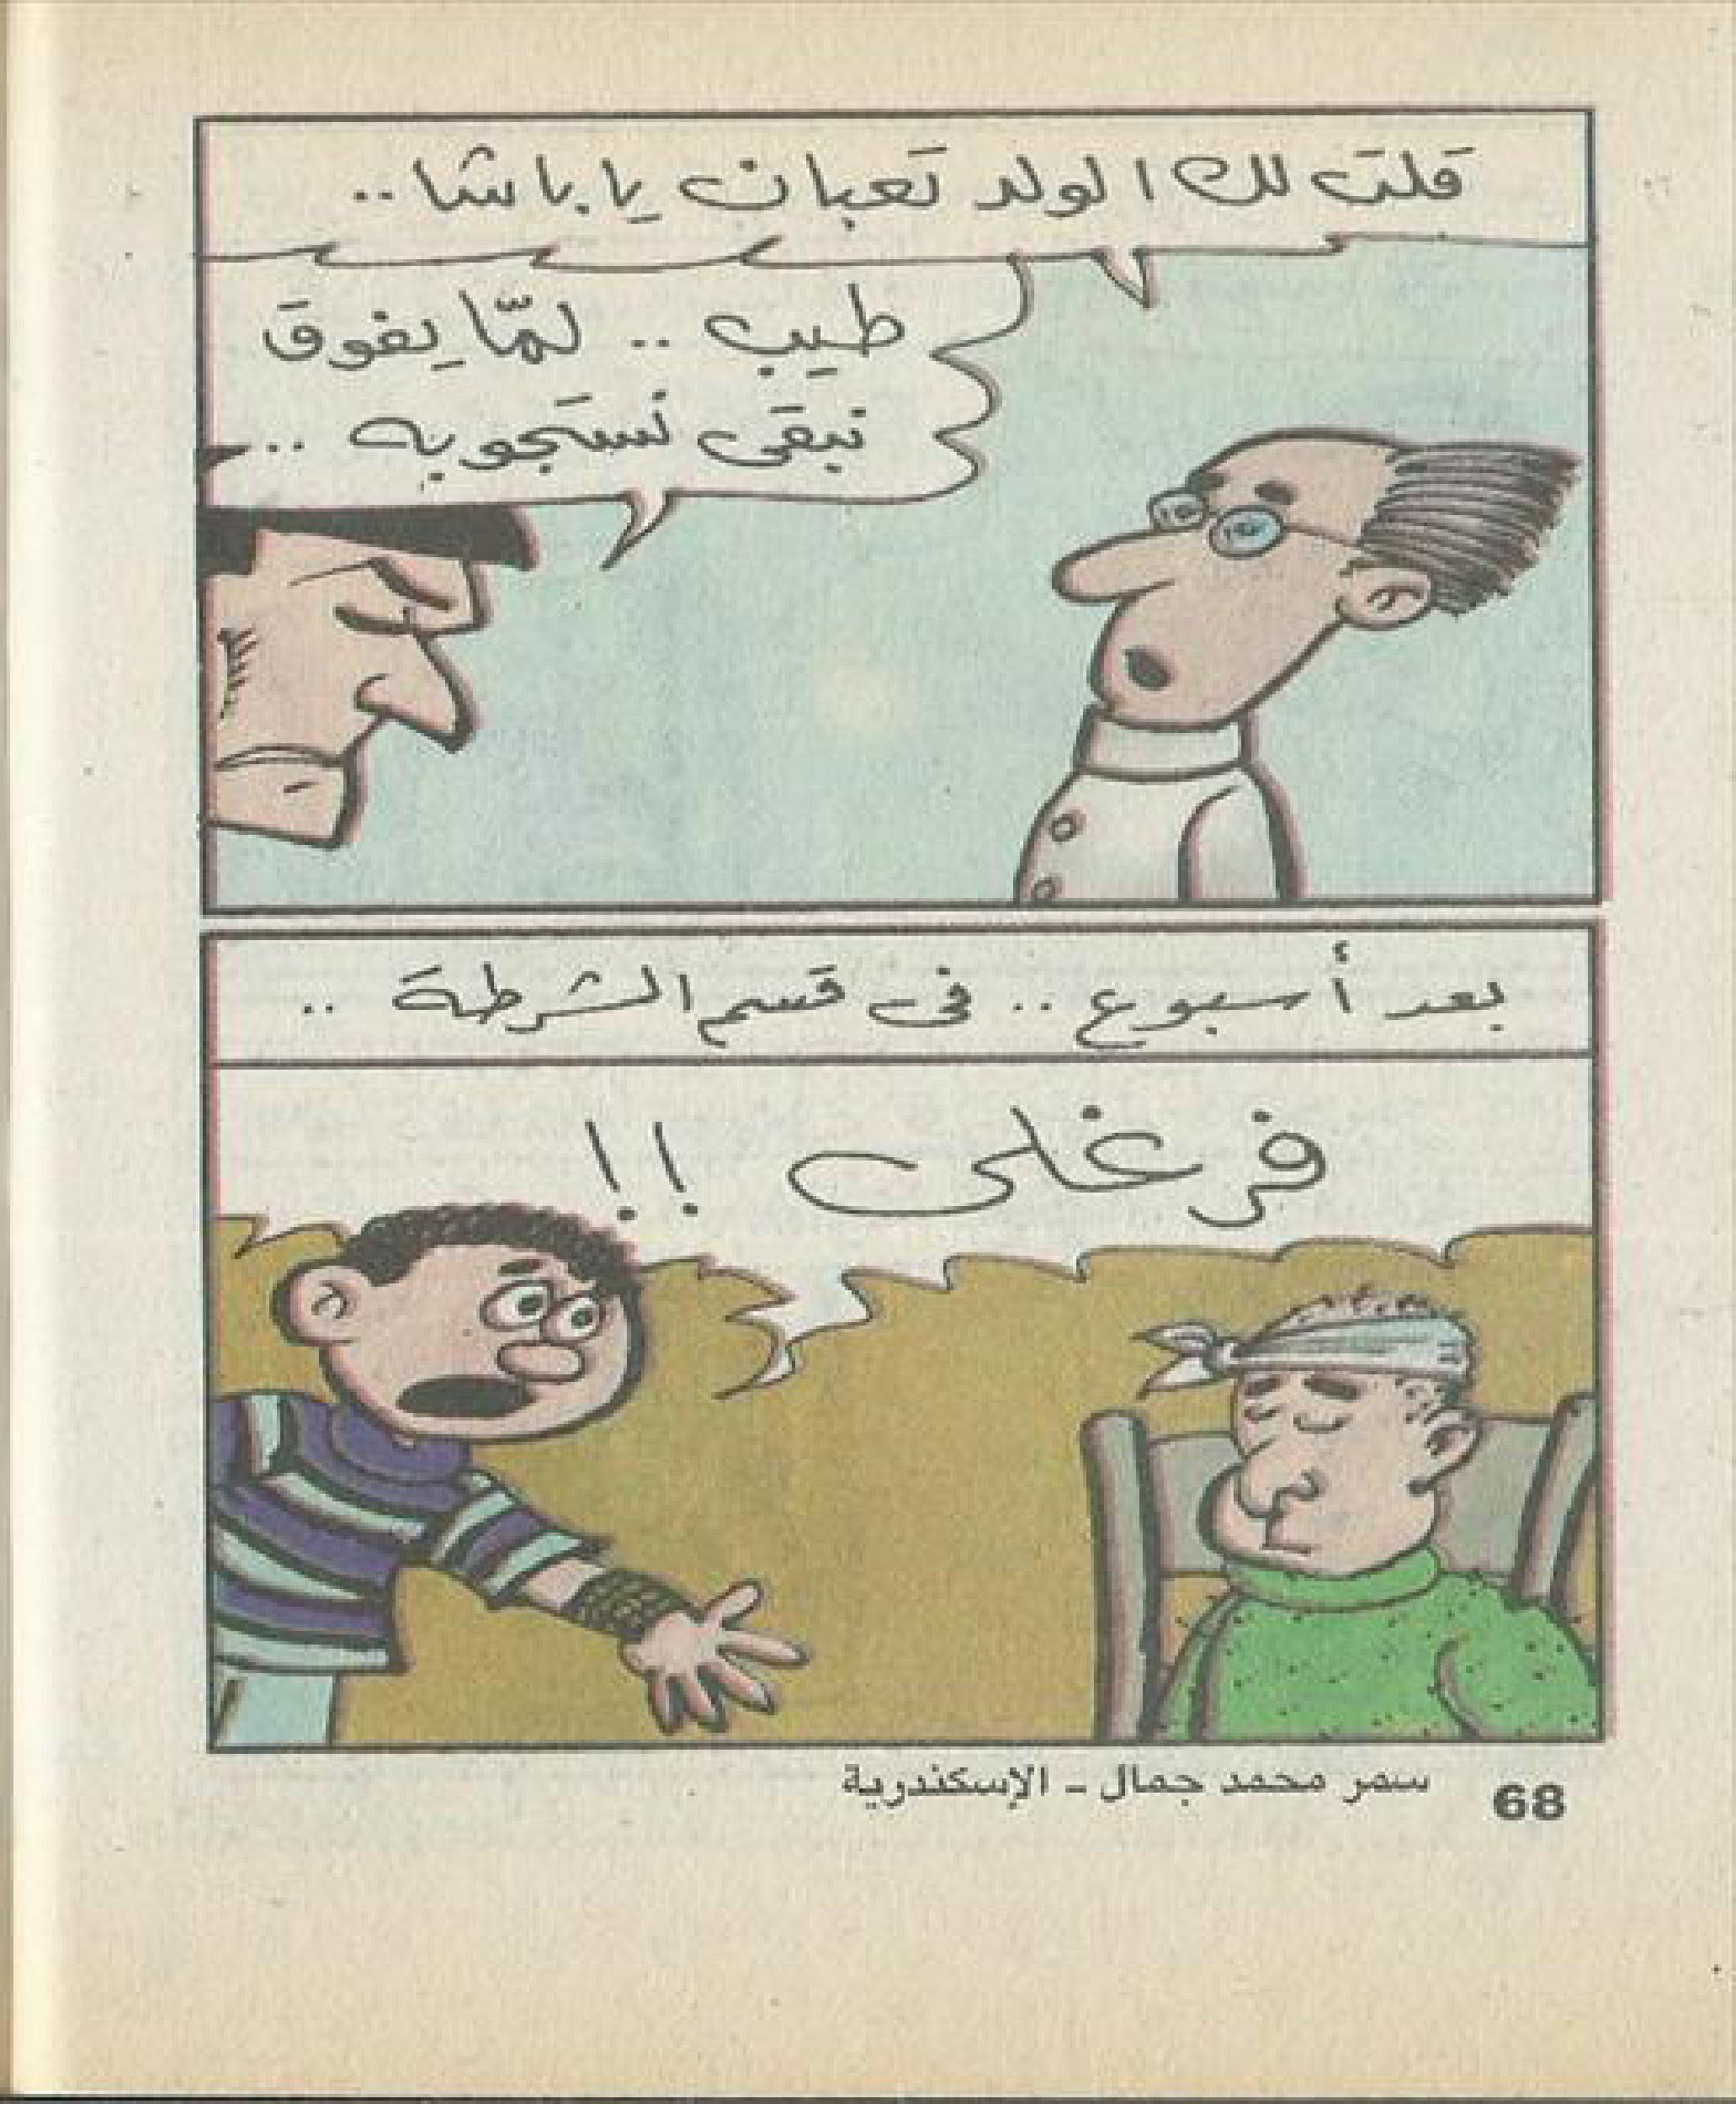 قلت لك الولد تعبان يا باشا..
طيب .. لمّا يفوق
نبقى نستجوبه ..
بعد أسبوع .. فى قسم الشرطة ..
فرغلى !!
68 سمر محمد جمال - الإسكندرية